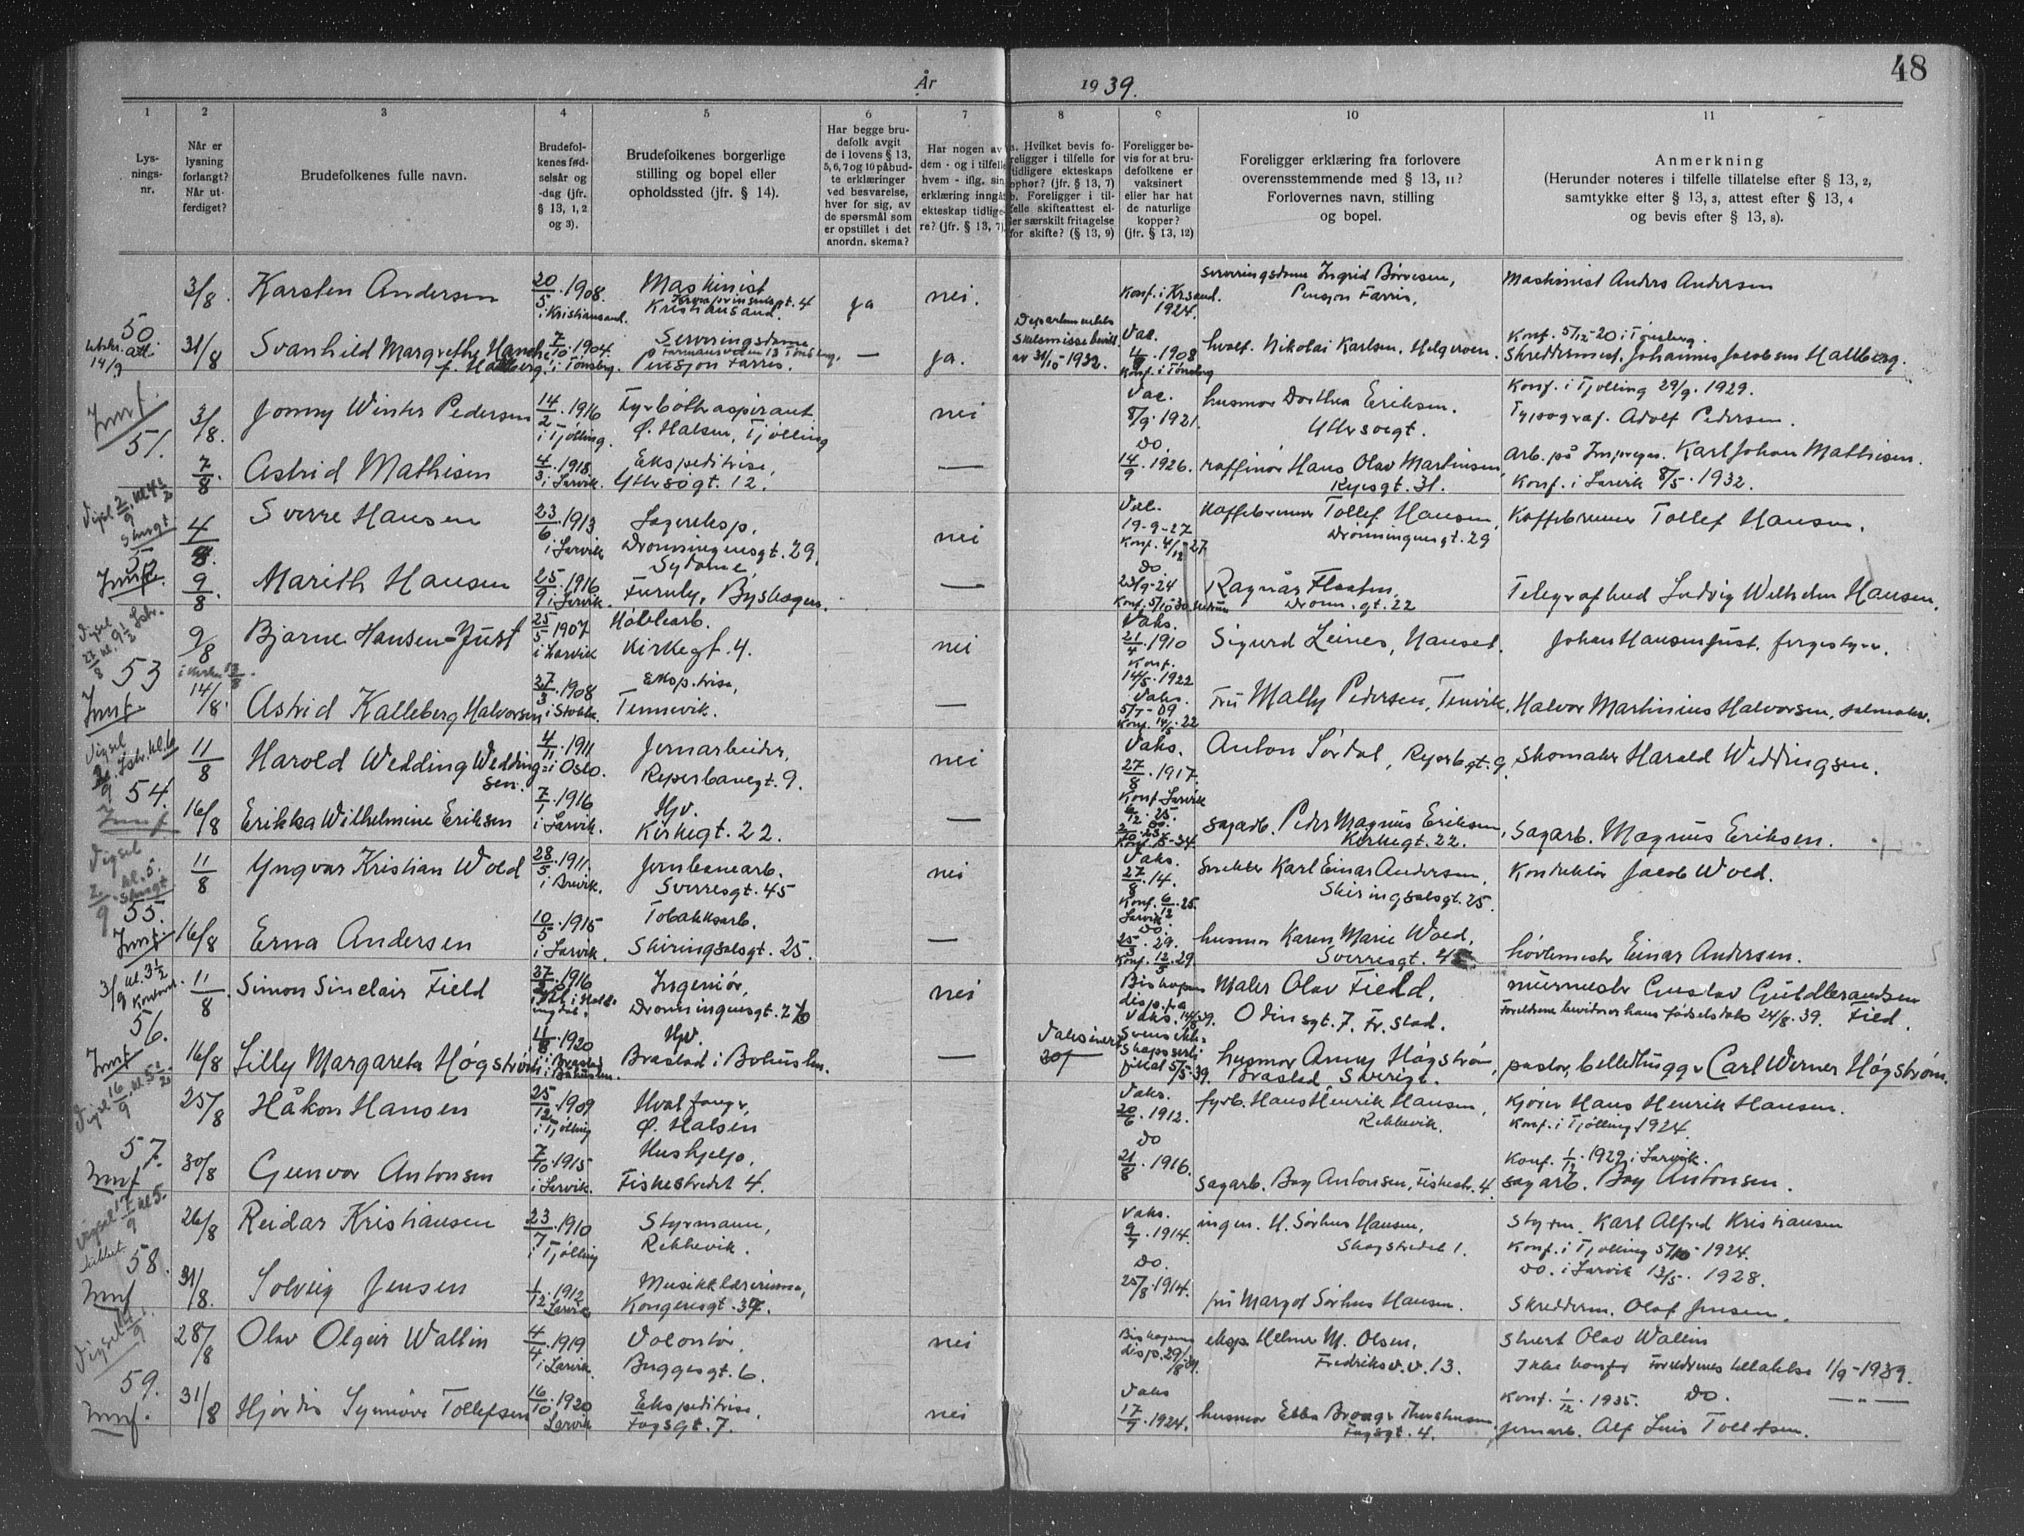 48
År 1939.
1 2 3 4 5 6 7 8 9 10 11
Lys-
nings-
nr.
Når er
lysning
forlangt?
Når ut-
ferdiget?
Brudefolkenes fulle navn.
Brudefol-
kenes fød-
selsår og
-dag (jfr.
§ 13, 1, 2
og 3).
Brudefolkenes borgerlige
stilling og bopel eller
opholdssted (jfr. § 14).
Har begge bru-
defolk avgit
de i lovens § 13,
5, 6, 7 og 10 påbud-
te erklæringer
ved besvarelse,
hver for sig, av
de spørsmål som
er opstillet i det
anordn. skema?
Har nogen av
dem - og i tilfelle
hvem - iflg. sin
erklæring inngått
ekteskap tidlige-
re? (jfr. § 13, 7).
a. Hvilket bevis fo-
religger i tilfelle for
tidligere ekteskaps
ophør? (jfr. § 13, 7)
b. Foreligger i til-
felle skifteattest el-
ler særskilt fritagelse
for skifte? (§ 13, 9)
Foreligger be-
vis for at bru-
defolkene er
vaksinert
eller har hat
de naturlige
kopper?
(jfr. § 13, 12)
Foreligger erklæring fra forlovere
overensstemmende med § 13, 11?
Forlovernes navn, stilling
og bopel.
Anmerkning
(Herunder noteres i tilfelle tillatelse efter § 13, 2,
samtykke efter § 13, 3, attest efter § 13, 4
og bevis efter § 13, 8).
50
3/8. Karsten Andersen 20/5 1908. i Kristiansand. Maskinist Kronprinsensgt. 4 Kristiansand. ja nei. Konf. i Kr.sand. 1924. serveringsdame Ingrid Børresen, Pensjon Farris. Maskinist Anders Andersen
utskr. att. 14/9 31/8 Svanhild Margrethe Hanche f. Hallberg. 7/10 1904. i Tønsberg. Serveringsdame Farmannsveien 13 Tønsberg, Pensjon Farris. — ja. Departementets skilsmissebevill. av 31/10-1932. Vac. 4/9 1908 Konf. i Tønsberg hvalf. Nikolai Karlsen, Helgeroen. Konf. 5/12-20 i Tønsberg. Skreddermest. Johannes Jacobsen Hallberg.
Innf. 51.
3/8. Jonny Winter Pedersen 14/2 1916 i Tjølling. Fyrbøteraspirant Ø. Halsen, Tjølling nei Vac. 8/9. 1921. husmor Dorthea Eriksen. Yttersøgt. Konf. i Tjølling 29/9. 1929. Typograf. Adolf Pedersen.
7/8 Astrid Mathisen 4/3 1918. i Larvik. Ekspeditrise, Yttersøgt. 12. — Do 14/9. 1926. raffinør Hans Olav Martinsen, Repsgt. 31. arb. på Impregn. Karl Johan Mathisen. Konf. i Larvik 8/5. 1932.
Vigsel 2/9. kl. 4½ Skrugt 52
4/8. Sverre Hansen 23/6 1913 i Larvik Lagereksp. Dronningensgt. 29. nei Vac. 19-9-27 Konf. 4/12-27 Kaffebrenner Tollef Hansen, Dronningensgt. 29 Kaffebrenner Tollef Hansen.
Innf. 9/8 Marith Hansen 25/9 1916 i Larvik. Sydame, Furuly, Byskogen. — Do 23/9-24 Konf. 5/10 30 Ragnar Floatten, Dronn.gt. 22 Telegrafbud Ludvig Wilhelm Hansen.
Vigsel 27/8 kl. 9½ 53
9/8 Bjarne Hansen-Just 25/5 1907 i Larvik Høvlearb. Kirkegt. 4. nei Vaks. 21/4 1910 Konf. 14/5. 1922 Sigurd Leines, Hanset. Johan Hansen Just, fergestyrer.
Innf. 14/8. Astrid Kalleberg Halvorsen 27/3 1908 i Stokke. Eksp.trise, Tennevik. — Vaks. 5/7-09 Konf. 14/5 22 Fru Mally Pedersen, Tenvik. Halvor Martinius Halvorsen, salmaker.
Vigsel 54.
11/8 Harold Wedding Wedding-sen. 4/11 1911 i Oslo. Jernarbeider, Reperbanegt. 9. nei Vaks. 27/8. 1917. Konf Larvik 6/12. 25. Anton Sørdal, Reperbgt. 9. Skomaker Harald Weddingsen.
Innf 16/8 Erikka Wilhelmine Eriksen 7/1 1916 i Larvik. Hjv. Kirkegt. 22. — sagarb. Peder Magnus Eriksen, Kirkegt. 22. Sagarb. Magnus Eriksen.
Vigsel 2/9 kl. 5. 55.
11/8 Yngvar Kristian Wold 28/5 1911. i Larvik. Jernbanearb. Sverresgt. 45 nei Vaks. 27/8 14. Konf. 6/12. 25. Larvik Karl Einar Andersen, Skiringsalsgt. 25. Konduktør Jacob Wold.
Innf. 16/8 Erna Andersen 10/5 1915 i Larvik. Tobakksarb. Skiringsalsgt. 25. — Do. 25/3. 29. Konf. 12/5. 29. husmor Karen Marie Wold, Sverresgt. 45. høvlemester Einar Andersen.
3/9 kl. 3½ Kontoret 56.
11/8. Simon Sinclair Field 1916 Ingeniør, Dronningensgt. nei Biskopens disp. fra Vaks. 14/8 39. Maler Olav Field, Odinsgt. 7. Fr.stad. murmester Gustav Guldbrandsen Field. Foreldrene bevidner hans fødselsdato 24/8. 39.
Innf 16/8 Lilly Margareta Høgstrøm 4/8 1920 i Brastad i Bohuslen. Hjv. Brastad i Bohuslen. — Vaksinert Svensk 5/5. 39. husmor Anny Høgstrøm, Brastad, Sverige. Carl Werner Høgstrøm.
Vigsel 16/9 kl. 5½ 57.
25/8 Håkon Hansen 25/12 1909 i Tjølling Hvalfanger, Ø. Halsen Vaks. 20/6. 1912. fyrb. Hans Henrik Hansen, Rekkevik. Kjører Hans Henrik Hansen. Konf. i Tjølling 1924.
Innf 30/8 Gunvor Antonsen 7/10 1915 i Larvik. Hushjelp, Fiskestredet 4. Do 21/8. 1916. sagarb. Boy Antonsen, Fiskestr. 4. Konf. 1/12. 1929 i Larvik. sagarb. Boy Antonsen.
Vigsel 17/9 kl. 5. 58.
26/8 Reidar Kristiansen 23/7 1910 i Tjølling Styrmann, Rekkevik. Vaks. 9/7. 1914. ingen. H. Sørhus Hansen, Skogstredet 1. Styrm. Karl Alfred Kristiansen Konf. i Tjølling 5/10-1924.
Innf 31/8. Solveig Jensen 1/12 1912 Larvik Musikklærerinne, Kongensgt. 37. Do. 25/8. 1914. fru Margot Sørhus Hansen. Do. i Larvik 13/5. 1928. Skredderm. Olaf Jensen.
Vigsel 59.
28/8 Olav Olgeir Wallin 4/4 1919 i Larvik. Volontør, Buggesgt. 6. nei Biskopens disp. 29/8 39. eksp. Helmer M. Olsen, Fredriksv.v. 13. Olav Wallin Ikke konf. Foreldrenes tillatelse 1/9-1939.
Innf. 31/8 Hjørdis Synnøve Tollefsen 16/10 1920 Larvik Ekspeditrise, Fogsgt. 7. nei Vaks 17/9. 1924. husmor Ebba Fogsgt. 4. Konf. 1/12. 1935. Do. —"— Jernarb. Alf Tollefsen.